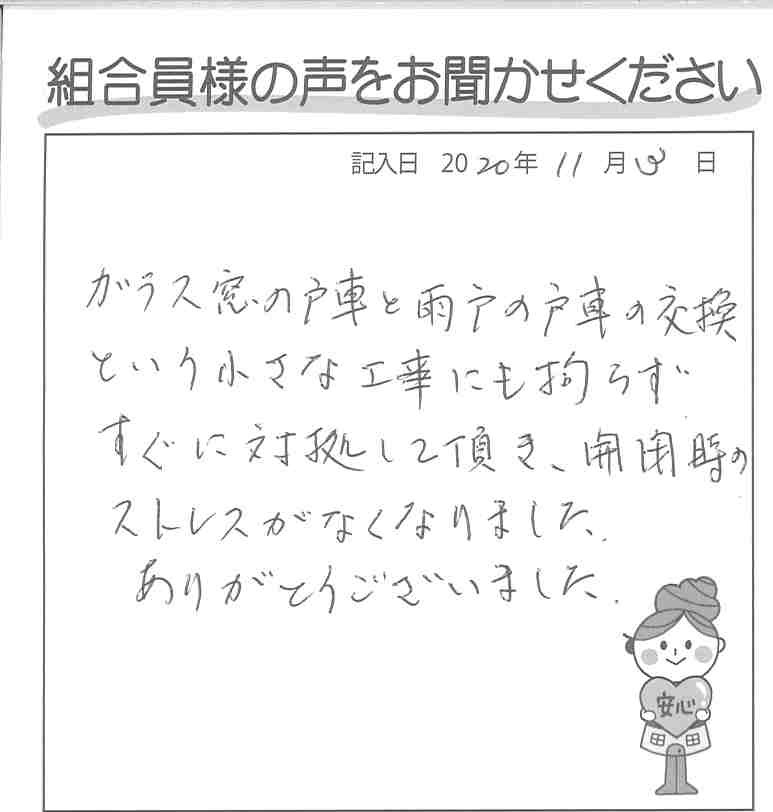 組合員様の声をお聞かせください
記入日 2020年 11月 日
ガラス窓の戸車と雨戸の戸車の交換
という小さな工事にも拘らず
すぐに対拠して頂き、開閉時の
ストレスがなくなりました.
ありがとうございました.
安心